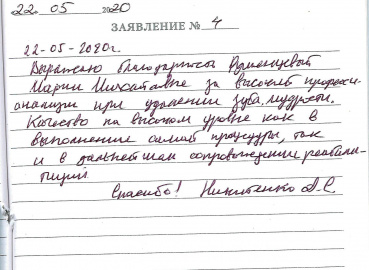 22. 05 2020
ЗАЯВЛЕНИЕ № 4
22-05-2020г.
Выражаю благодарность
Марии Михайловне за высокий професси-
онализм при удалении зуба мудрости.
Качество на высоком уровне как в
выполнении самой процедуры, так
и в дальнейшем сопровождении реабили-
тации
Спасибо! Никитенко А.С.